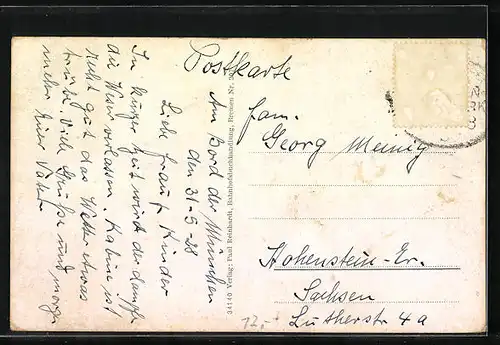 Postkarte
An Bord der München
den 31-5-28
Liebe Frau & Kinder
In kurzer Zeit wird der Dampfer
die Weser verlassen. Kabine ist
recht gut das Wetter etwas
trübe viele Grüße und
Euer Vater
34140 Verlag: Paul Reinhardt, Bahnhofsbuchhandlung, Bremen Nr.
Fam.
Georg Meinig
Hohenstein-Er.
Sachsen
Lutherstr 4a
12,-